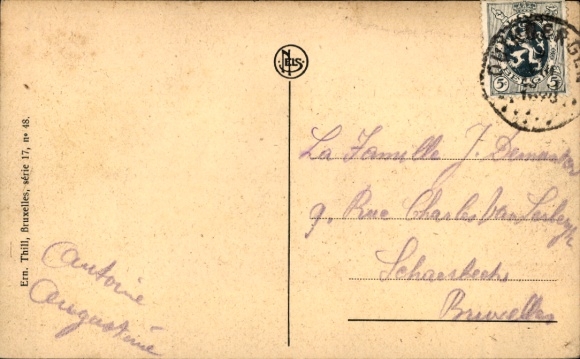 NELS
OUDERGEM
BELGIË
5 5
Ern. Thill, Bruxelles, série 17, nº 48.
Antoine
Augustine
La Famille J. Demeester
9, Rue Charles Van
Schaerbeek
Bruxelles